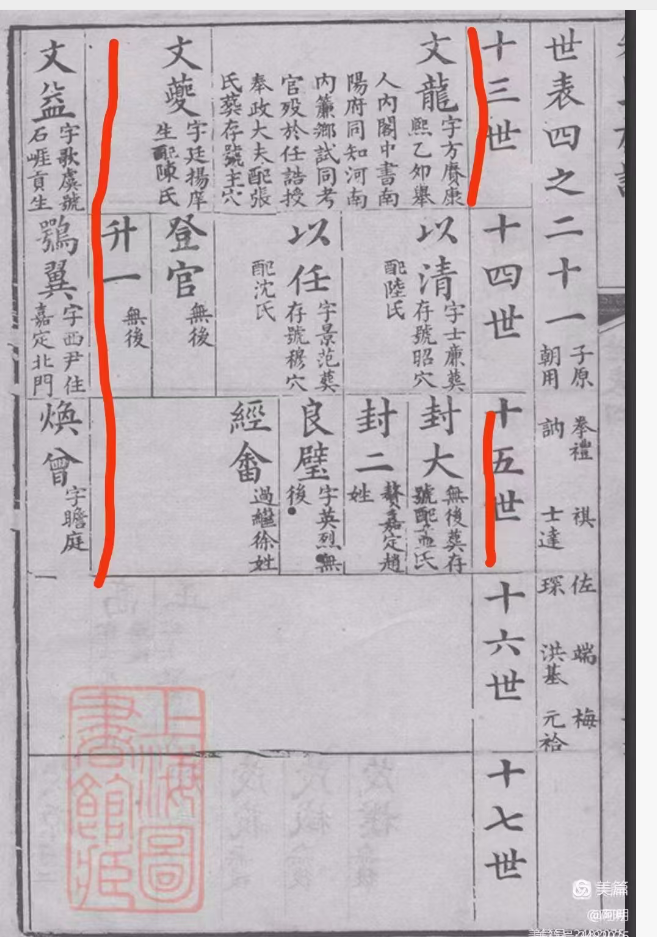 世表四之二十一
子原 拳禮 祺 佐 端 梅
朝用 訥 士達 琛 洪基 元袷
十三世
文龍
字方賡康
熙乙卯舉
人內閣中書南
陽府同知河南
內簾鄉試同考
官歿於任誥授
奉政大夫配張
氏葬存號主穴
文夔
字廷揚庠
生配陳氏
文益
字歌虞號
石崕貢生
十四世
以清
字士廉葬
存號昭穴
配陸氏
以任
字景范葬
存號穆穴
配沈氏
登官
無後
升一
無後
鶚翼
字西尹住
嘉定北門
十五世
封大
無後葬存
號配孟氏
封二
贅嘉定趙
姓
良璧
字英烈無
後
經畬
過繼徐姓
煥曾
字瞻庭
十六世
十七世
上海圖
書館藏
美篇
@阿明